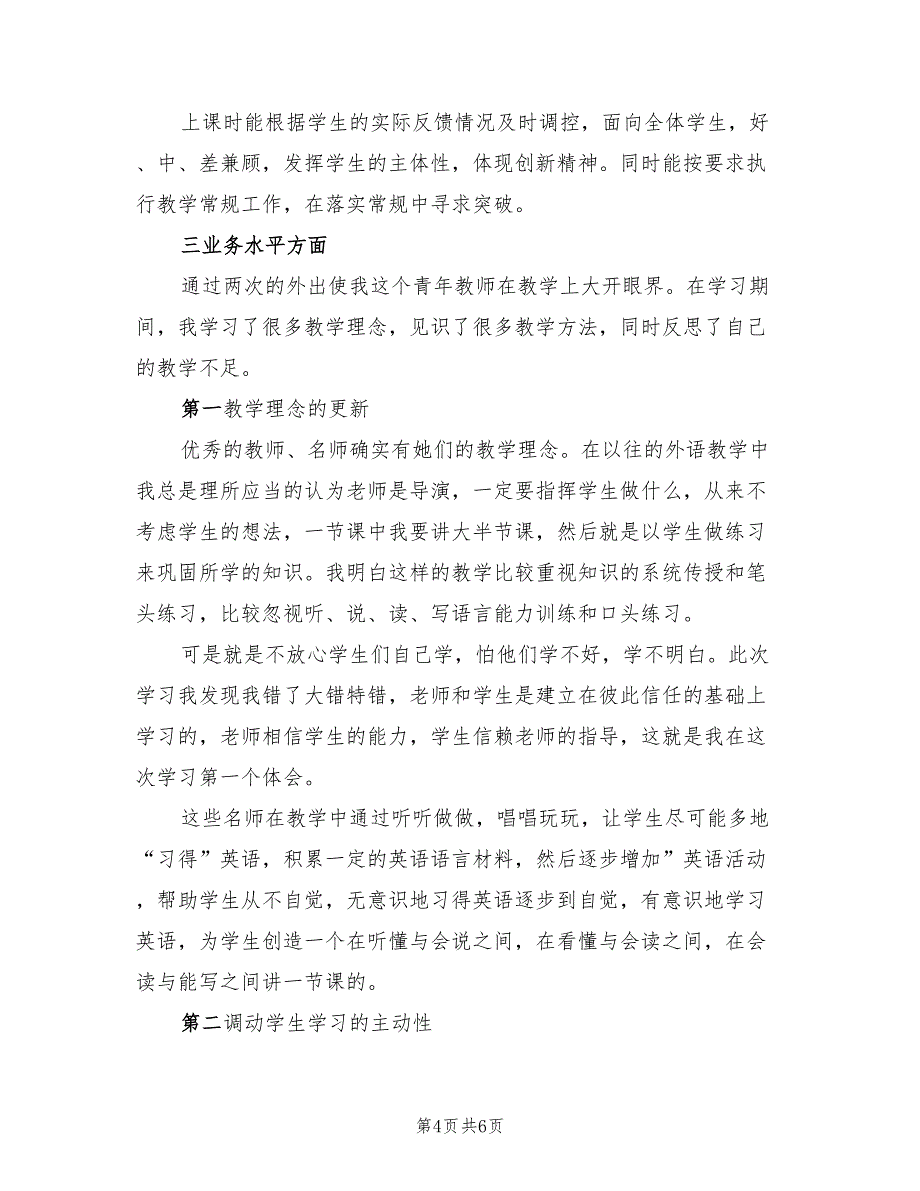 上课时能根据学生的实际反馈情况及时调控，面向全体学生，好
、中、差兼顾，发挥学生的主体性，体现创新精神。同时能按要求执
行教学常规工作，在落实常规中寻求突破。
三业务水平方面
通过两次的外出使我这个青年教师在教学上大开眼界。在学习期
间，我学习了很多教学理念，见识了很多教学方法，同时反思了自己
的教学不足。
第一教学理念的更新
优秀的教师、名师确实有她们的教学理念。在以往的外语教学中
我总是理所应当的认为老师是导演，一定要指挥学生做什么，从来不
考虑学生的想法，一节课中我要讲大半节课，然后就是以学生做练习
来巩固所学的知识。我明白这样的教学比较重视知识的系统传授和笔
头练习，比较忽视听、说、读、写语言能力训练和口头练习。
可是就是不放心学生们自己学，怕他们学不好，学不明白。此次
学习我发现我错了大错特错，老师和学生是建立在彼此信任的基础上
学习的，老师相信学生的能力，学生信赖老师的指导，这就是我在这
次学习第一个体会。
这些名师在教学中通过听听做做，唱唱玩玩，让学生尽可能多地
“习得”英语，积累一定的英语语言材料，然后逐步增加”英语活动
，帮助学生从不自觉，无意识地习得英语逐步到自觉，有意识地学习
英语，为学生创造一个在听懂与会说之间，在看懂与会读之间，在会
读与能写之间讲一节课的。
第二调动学生学习的主动性
第4页共6页